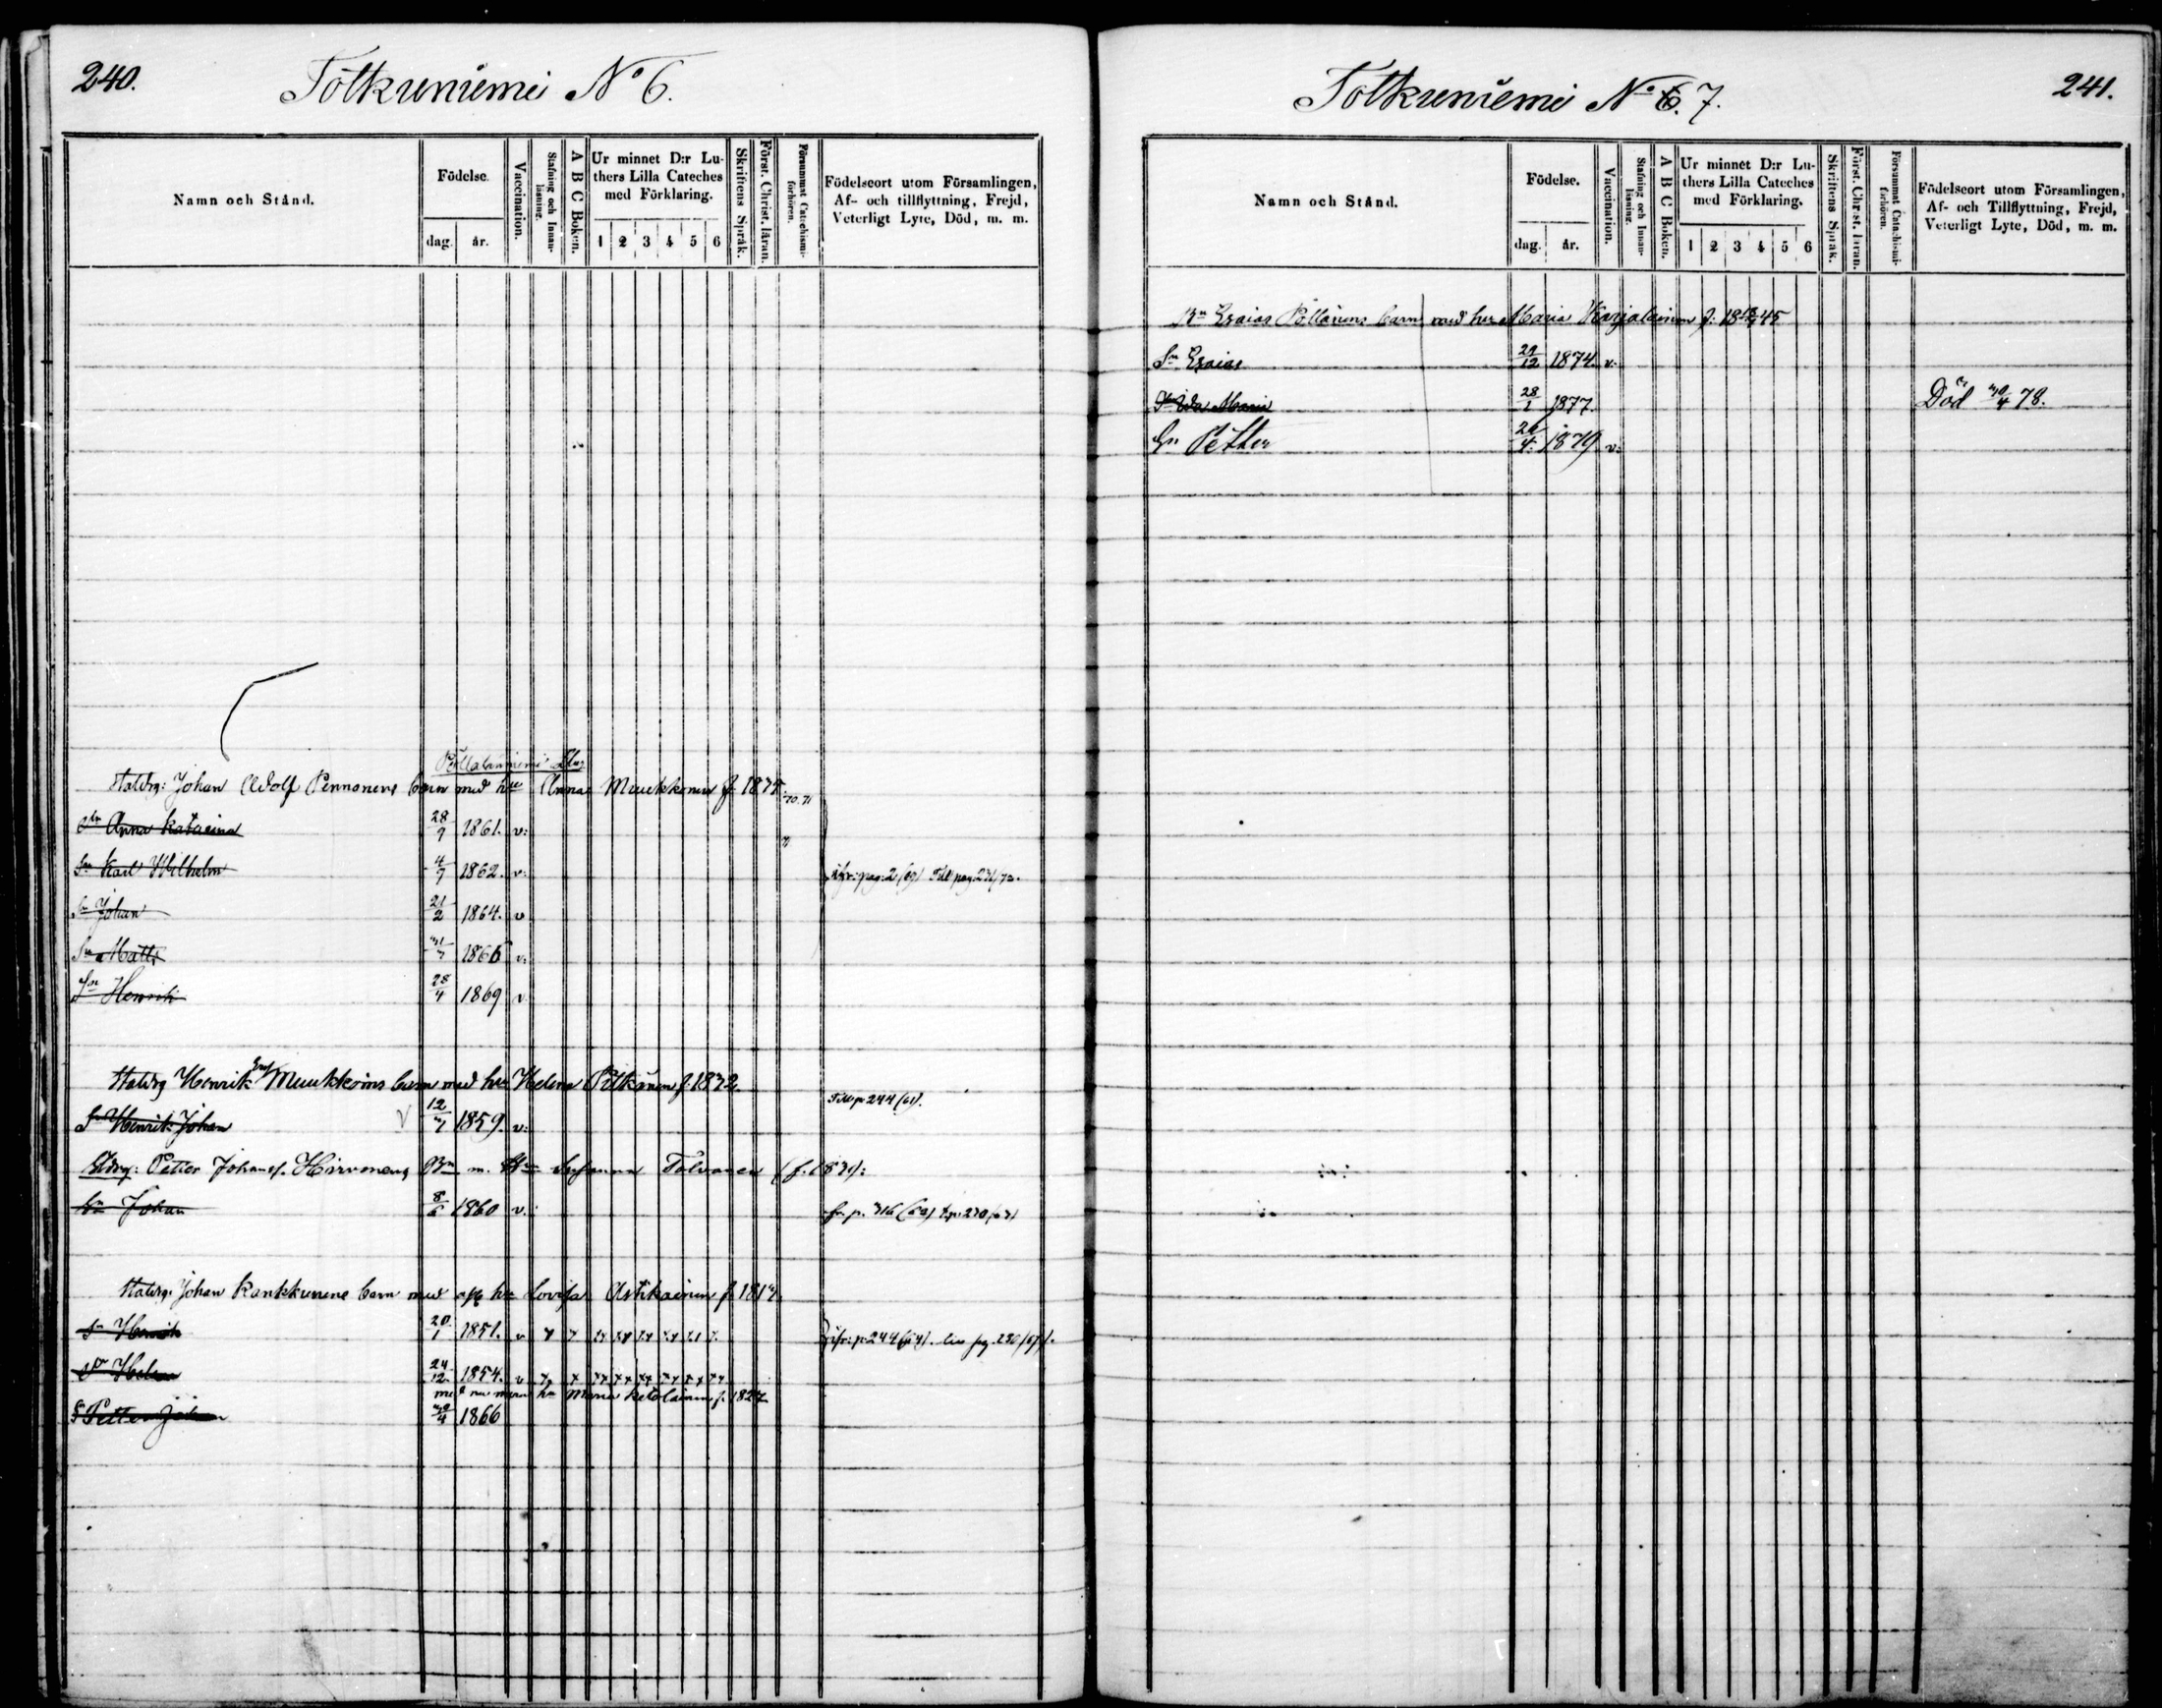 240.
Tolkuniemi No 6.
Namn och Stånd.
Födelse.
dag.
år.
Vaccination.
Stafning och Innanläsning.
A B C Boken.
Ur minnet D:r Luthers Lilla Cateches med Förklaring.
1 2 3 4 5 6
Skriftens Språk.
Först. Christ. läran.
Försummat Catechismiförhören.
Födelseort utom Församlingen,
Af- och tillflyttning, Frejd,
Veterligt Lyte, Död, m. m.
Staldrg: Johan Adolf Pennonens barn med hu Anna Muukkonen f. 1835. 70. 71
Anna Katarina 28/9 1861. v:
Sn Karl Wilhelm 4/7 1862. v:
Sn Johan 21/2 1864. v
Sn Matts 1866 v:
Sn Henrik 28/4 1869 v
Staldrg Henrik Muukkoins barn med hu Helena Pitkänen f. 1832.
Till p 244 (61).
Sn Henrik Johan 12/7 1859. v:
Stdrg: Petter Johansf. Hirvonens Bn m. Hu Susanna Tolvanen
Sn Johan 8/6 1860 v.
Staldrg: Johan Kankkunens barn med afl hu Lovisa Astikainen f. 1817.
Sn Henrik 20/1 1851. v
Dr Helena 24/12 1854. v
med nu mera hu Maria Ketolainen f. 1827
Sn Petter Johan 1866
Tolkuniemi No 6. 7.
241.
Namn och Stånd.
Födelse.
dag.
år.
Vaccination.
Stafning och Innanläsning.
A B C Boken.
Ur minnet D:r Luthers Lilla Cateches med Förklaring.
1 2 3 4 5 6
Skriftens Språk.
Först. Christ. läran.
Försummat Catechismiförhören.
Födelseort utom Församlingen,
Af- och Tillflyttning, Frejd,
Veterligt Lyte, Död, m. m.
Bn Esaias Pöllänens barn med hu Maria Karjalainen f: 45
Sn Esaias 29/12 1874. v.
Ida Maria 28/1 1877. Död 30/4 78.
Sn Petter 26/4. 1879 v: